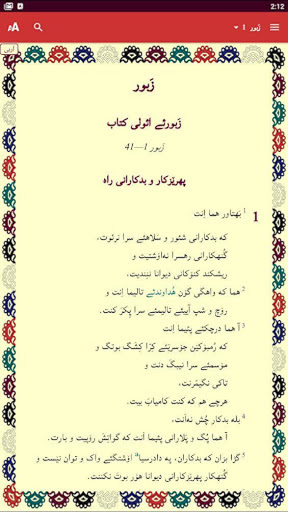 2:12
زَبور 1
اَربی
زَبور
زَبورئے ائولی کتاب
زَبور 1—41
پهرێزکار و بدکارانی راه
1 1 بَهتاور هما اِنت
که بدکارانی شئور و سَلاهئے سرا نرئوت،
گُنهکارانی رهسرا نه‌اۆشتیت و
ریشکند کنۆکانی دیوانا نِندیت،
2 هما که واهگی گۆن هُداوندئے تالیما اِنت و
رۆچ و شپ آییئے تالیمئے سرا پِکرَ کنت.
3 آ هما درچکئے پئیما اِنت
که رُمبۆکێن جۆسرێئے کِرّا کِشگ بوتگ و
مۆسمئے سرا نیبگَ دنت و
تاکی نگیمّرنت،
هرچے هم که کنت کامیابَ بیت.
4 بله بدکار چُش نه‌اَنت،
آ هما پُگ و پَلارانی پئیما اَنت که گواتِش رۆپیت و بارت.
5 گڑا بزان که بدکاران، په دادرسیا a اۆشتگئے واک و توان نێست و
گُنهکار پهرێزکارانی دیوانا هۆر بوتَ نکننت.